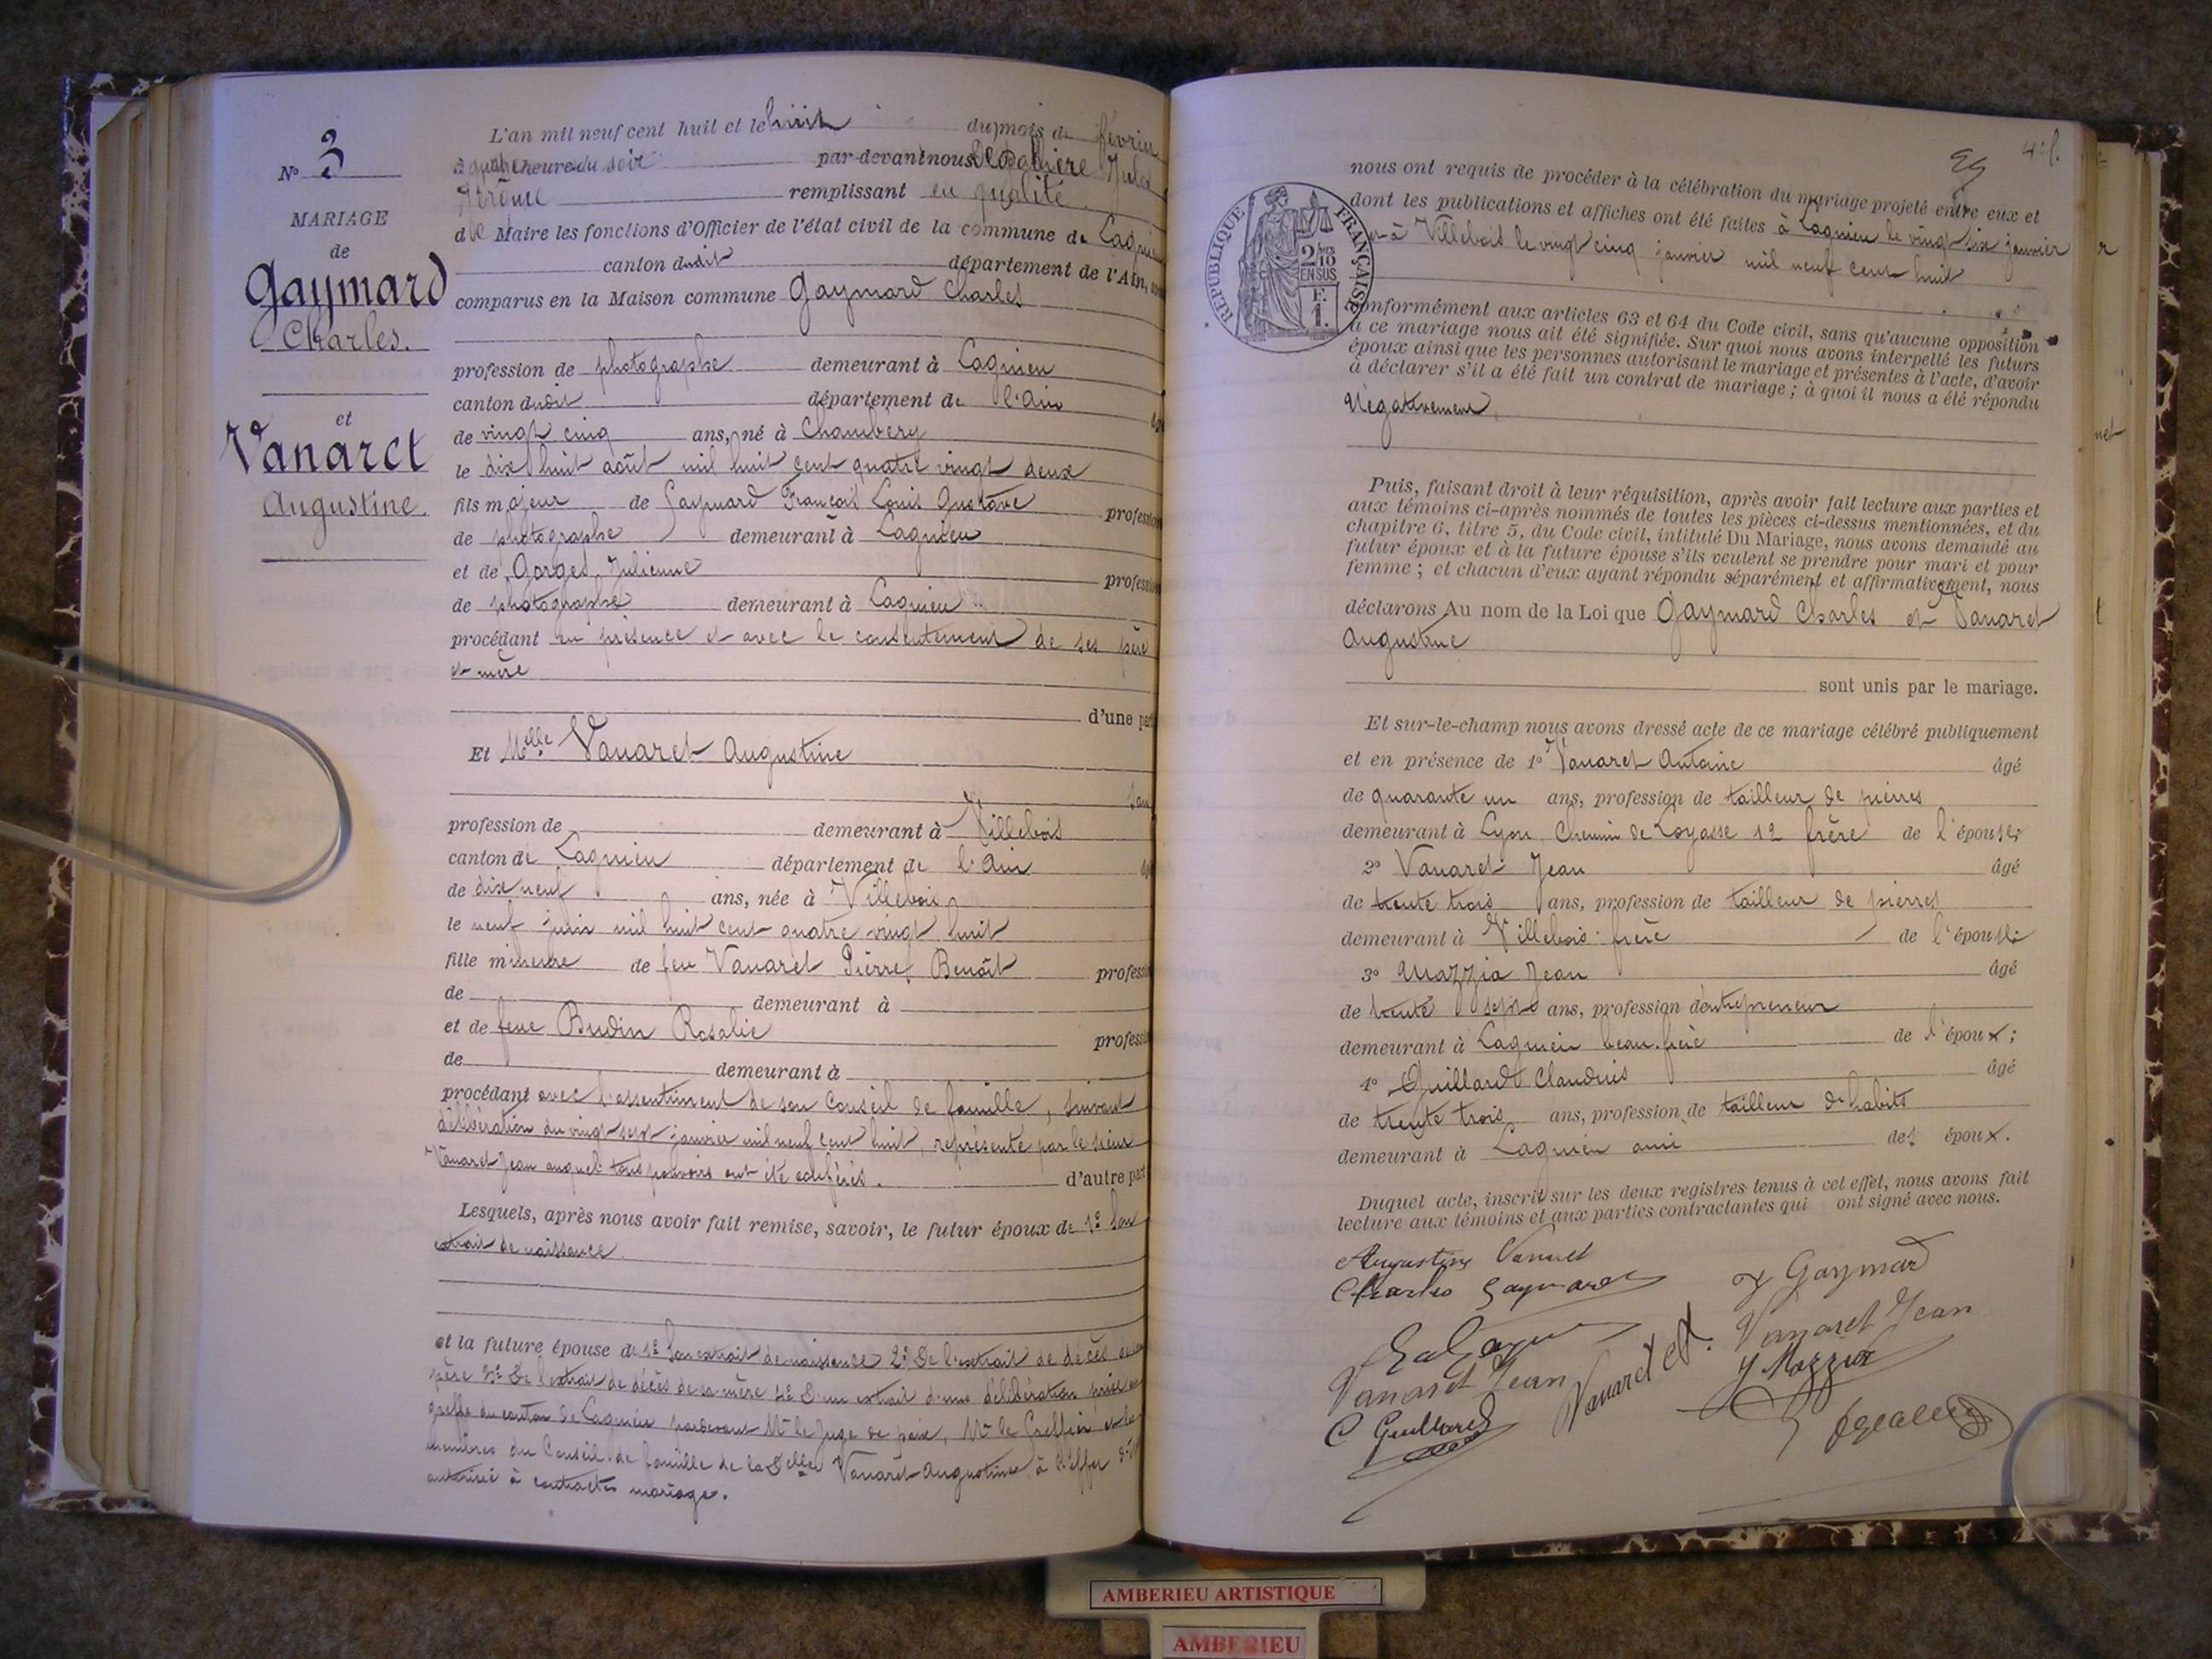 N° 3
MARIAGE
de
Gaymard
Charles.
et
Vanaret
Augustine.
L'an mil neuf cent huit et le huit du mois de février
à quatre heure du soir par-devant nous Jules
Jérôme remplissant en qualité
de Maire les fonctions d'Officier de l'état civil de la commune de Lagnieu
canton dudit département de l'Ain,
comparus en la Maison commune Gaymard Charles
profession de photographe demeurant à Lagnieu
canton dudit département de l'Ain
de vingt cinq ans, né à Chambéry
le dix huit août mil huit cent quatre vingt deux
fils majeur de Gaymard François Louis Gustave profession
de photographe demeurant à Lagnieu
et de Gorges Julienne profession
de photographe demeurant à Lagnieu
procédant en présence et avec le consentement de ses père
et mère
d'une part
Et Melle Vanaret Augustine
sans
profession de demeurant à Villebois
canton de Lagnieu département de l'Ain
de dix neuf ans, née à Villebois
le neuf juin mil huit cent quatre vingt huit
fille mineure de feu Vanaret Pierre Benoît profession
de demeurant à
et de feue Budin Rosalie profession
de demeurant à
procédant avec l'assentiment de son Conseil de famille, suivant
délibération du vingt sept janvier mil neuf cent huit, représenté par le sieur
Vanaret Jean auquel tous pouvoirs ont été conférés. d'autre part
Lesquels, après nous avoir fait remise, savoir, le futur époux de 1° Son
extrait de naissance.
et la future épouse de 1° Son extrait de naissance 2° De l'extrait de décès de son
père 3° De l'extrait de décès de sa mère 4° D'un extrait d'une délibération prise au
greffe du canton de Lagnieu pardevant Mr le Juge de paix, Mr le Greffier et les
membres du Conseil de famille de la Delle Vanaret Augustine à l'effet d'être
autorisée à contracter mariage.
nous ont requis de procéder à la célébration du mariage projeté entre eux et
dont les publications et affiches ont été faites à Lagnieu le vingt six janvier
et à Villebois le vingt cinq janvier mil neuf cent huit
RÉPUBLIQUE FRANÇAISE
2/10
EN SUS
F.
1.
conformément aux articles 63 et 64 du Code civil, sans qu'aucune opposition
à ce mariage nous ait été signifiée. Sur quoi nous avons interpellé les futurs
époux ainsi que les personnes autorisant le mariage et présentes à l'acte, d'avoir
à déclarer s'il a été fait un contrat de mariage ; à quoi il nous a été répondu
Négativement,
Puis, faisant droit à leur réquisition, après avoir fait lecture aux parties et
aux témoins ci-après nommés de toutes les pièces ci-dessus mentionnées, et du
chapitre 6, titre 5, du Code civil, intitulé Du Mariage, nous avons demandé au
futur époux et à la future épouse s'ils veulent se prendre pour mari et pour
femme ; et chacun d'eux ayant répondu séparément et affirmativement, nous
déclarons Au nom de la Loi que Gaymard Charles et Vanaret
Augustine
sont unis par le mariage.
Et sur-le-champ nous avons dressé acte de ce mariage célébré publiquement
et en présence de 1° Vanaret Antoine âgé
de quarante un ans, profession de tailleur de pierres
demeurant à Lyon, Chemin de Loyasse 12 frère de l'épouse;
2° Vanaret Jean âgé
de trente trois ans, profession de tailleur de pierres
demeurant à Villebois frère de l'épouse;
3° Mazzia Jean âgé
de trente sept ans, profession d'entrepreneur
demeurant à Lagnieu beau-frère de l'époux;
4° Guillard Claudius âgé
de trente trois ans, profession de tailleur d'habits
demeurant à Lagnieu ami des époux.
Duquel acte, inscrit sur les deux registres tenus à cet effet, nous avons fait
lecture aux témoins et aux parties contractantes qui ont signé avec nous.
Augustine Vanaret
Charles Gaymard
Gaymard
Vanaret Jean
Vanaret Jean
Vanaret
J Mazzia
C Guillard
AMBERIEU ARTISTIQUE
AMBERIEU